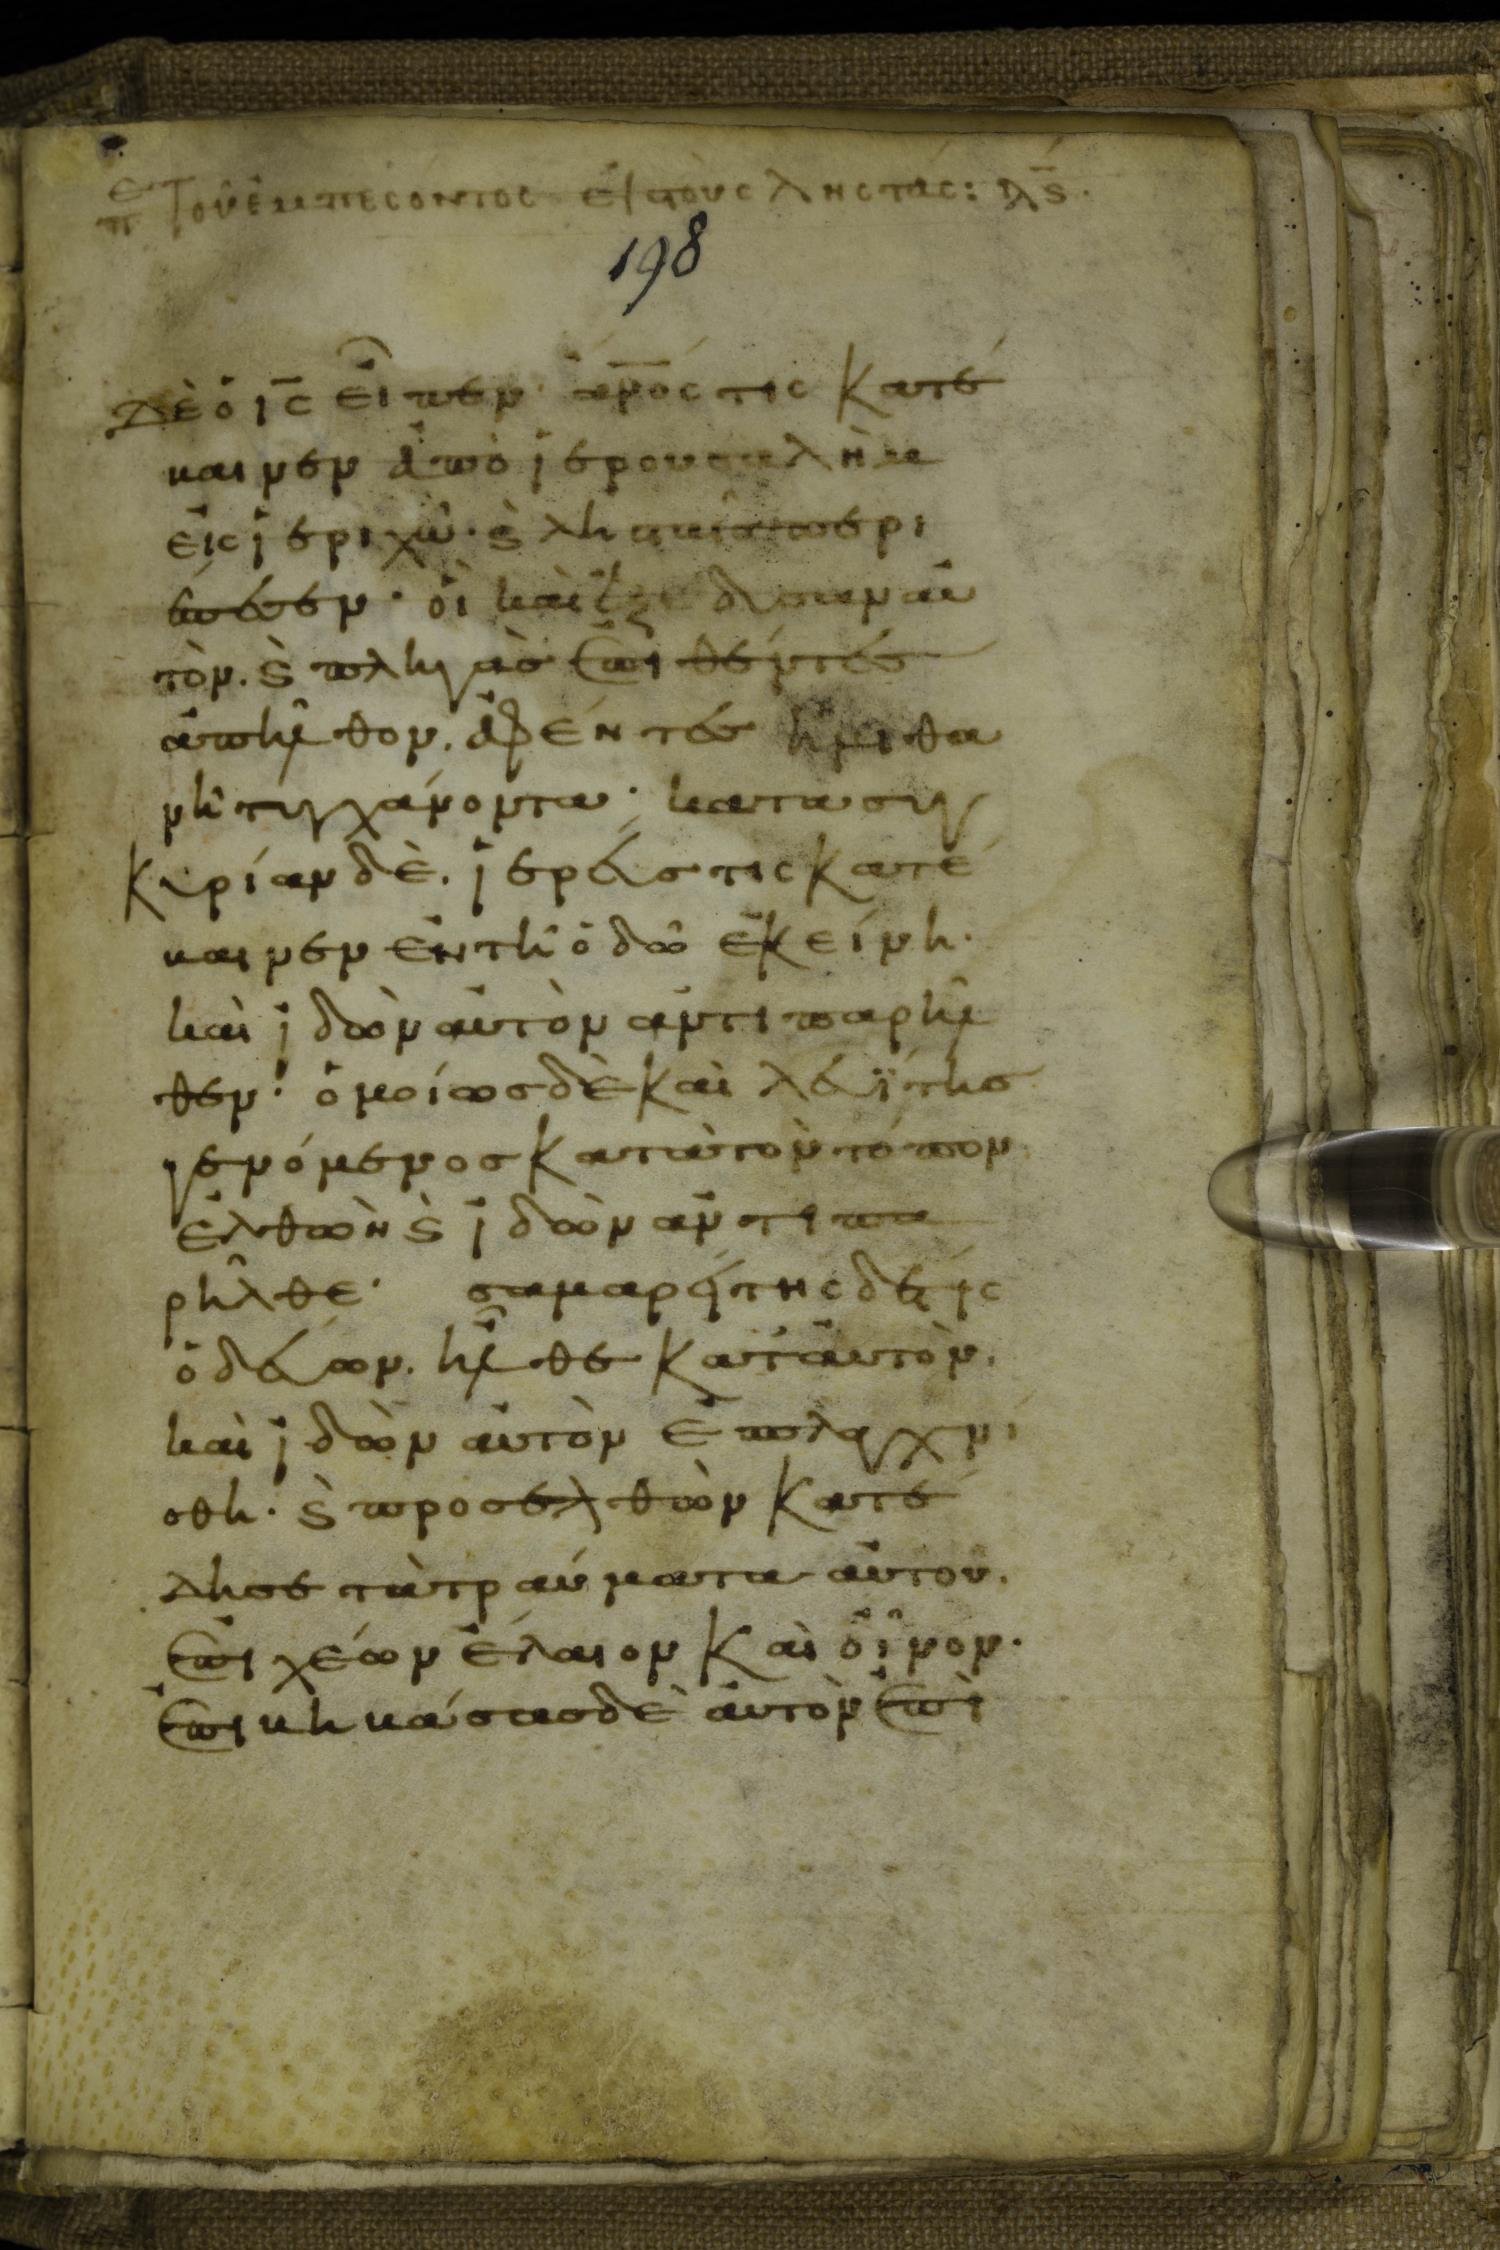 πε Τοῦ ἐμπεσόντος εἰς τοὺς ληστάς: λϛ.
198
δὲ ὁ ις εἶπεν· ἀνος τις κατέ
καινεν ἀπὸ ἱερουσαλὴμ
εἰς ἱεριχὼ· ϛ λησταῖς περι
έπεσεν· οἳ καὶ ἐξεδυσαν αὐ
τὸν. ϛ πληγὰσ ἐπιθέντεσ
ἀπῆλθον. ἀφέντεσ ἡμιθα
νῆ τυγχάνοντα· κατα συγ
κυρίαν δὲ. ἱερεύσ τις κατέ
καινεν ἐν τῆ ὁδῶ ἐκείνη.
καὶ ἰδὼν αὐτὸν ἀντιπαρῆλ
θεν· ὁμοίωσ δὲ καὶ λευΐτησ
γενόμενοσ κατὰ τὸν τόπον
ἐλθὼν ϛ ἰδὼν ἀντιπα
ρῆλθε· σαμαρείτης δέ τις
ὁδεύων. ἦλθε κατ' αὐτὸν.
καὶ ἰδὼν αὐτὸν ἐσπλαγχνί
σθη. ϛ προσελθὼν κατέ
δησε τὰ τραύματα αὐτου.
ἐπιχέων ἔλαιον καὶ οἶνον.
ἐπικηκάσασ δὲ αὐτὸν ἐπὶ